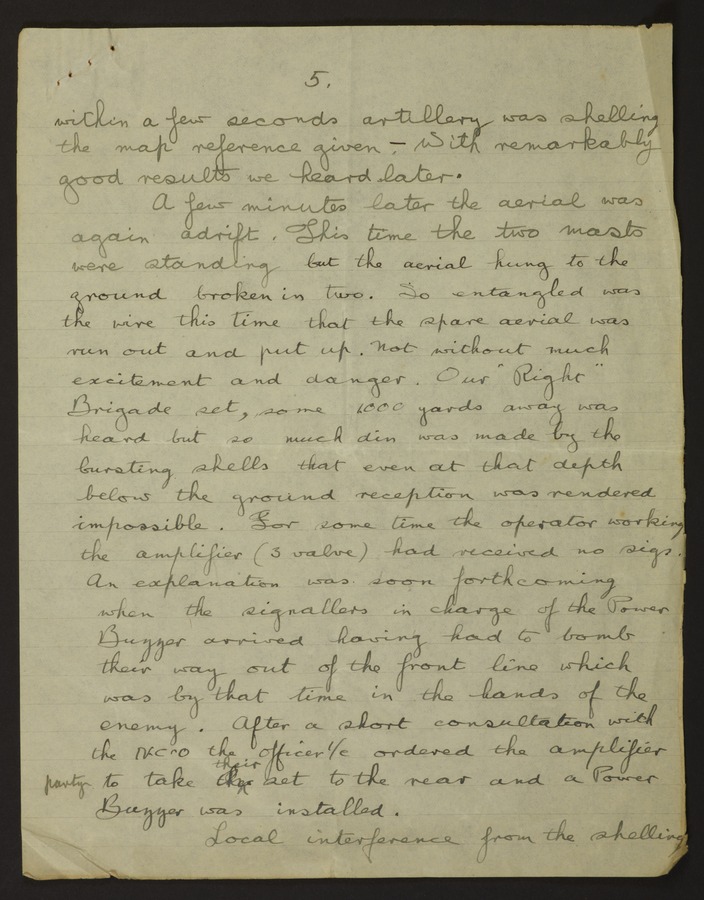 5.
within a few seconds artillery was shelling
the map reference given - With remarkably
good results we heard later.
A few minutes later the aerial was
again adrift. This time the two masts
were standing but the aerial hung to the
ground broken in two. So entangled was
the wire this time that the spare aerial was
run out and put up. Not without much
excitement and danger. Our "Right"
Brigade set, some 1000 yards away was
heard but so much din was made by the
bursting shells that even at that depth
below the ground reception was rendered
impossible. For some time the operator working
the amplifier (3 valve) had received no sigs.
An explanation was soon forthcoming
when the signallers in charge of the Power
Buzzer arrived having had to bomb
their way out of the front line which
was by that time in the hands of the
enemy. After a short consultation with
the NCO the officer i/c ordered the amplifier
party to take their set to the rear and a Power
Buzzer was installed.
Local interference from the shelling